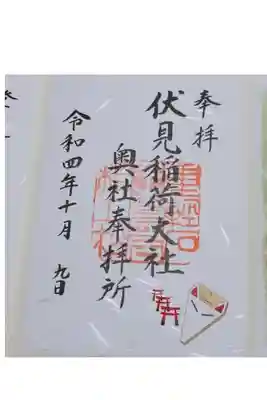 奉拝
伏見稲荷大社
奥社奉拝所
令和四年十月 九日